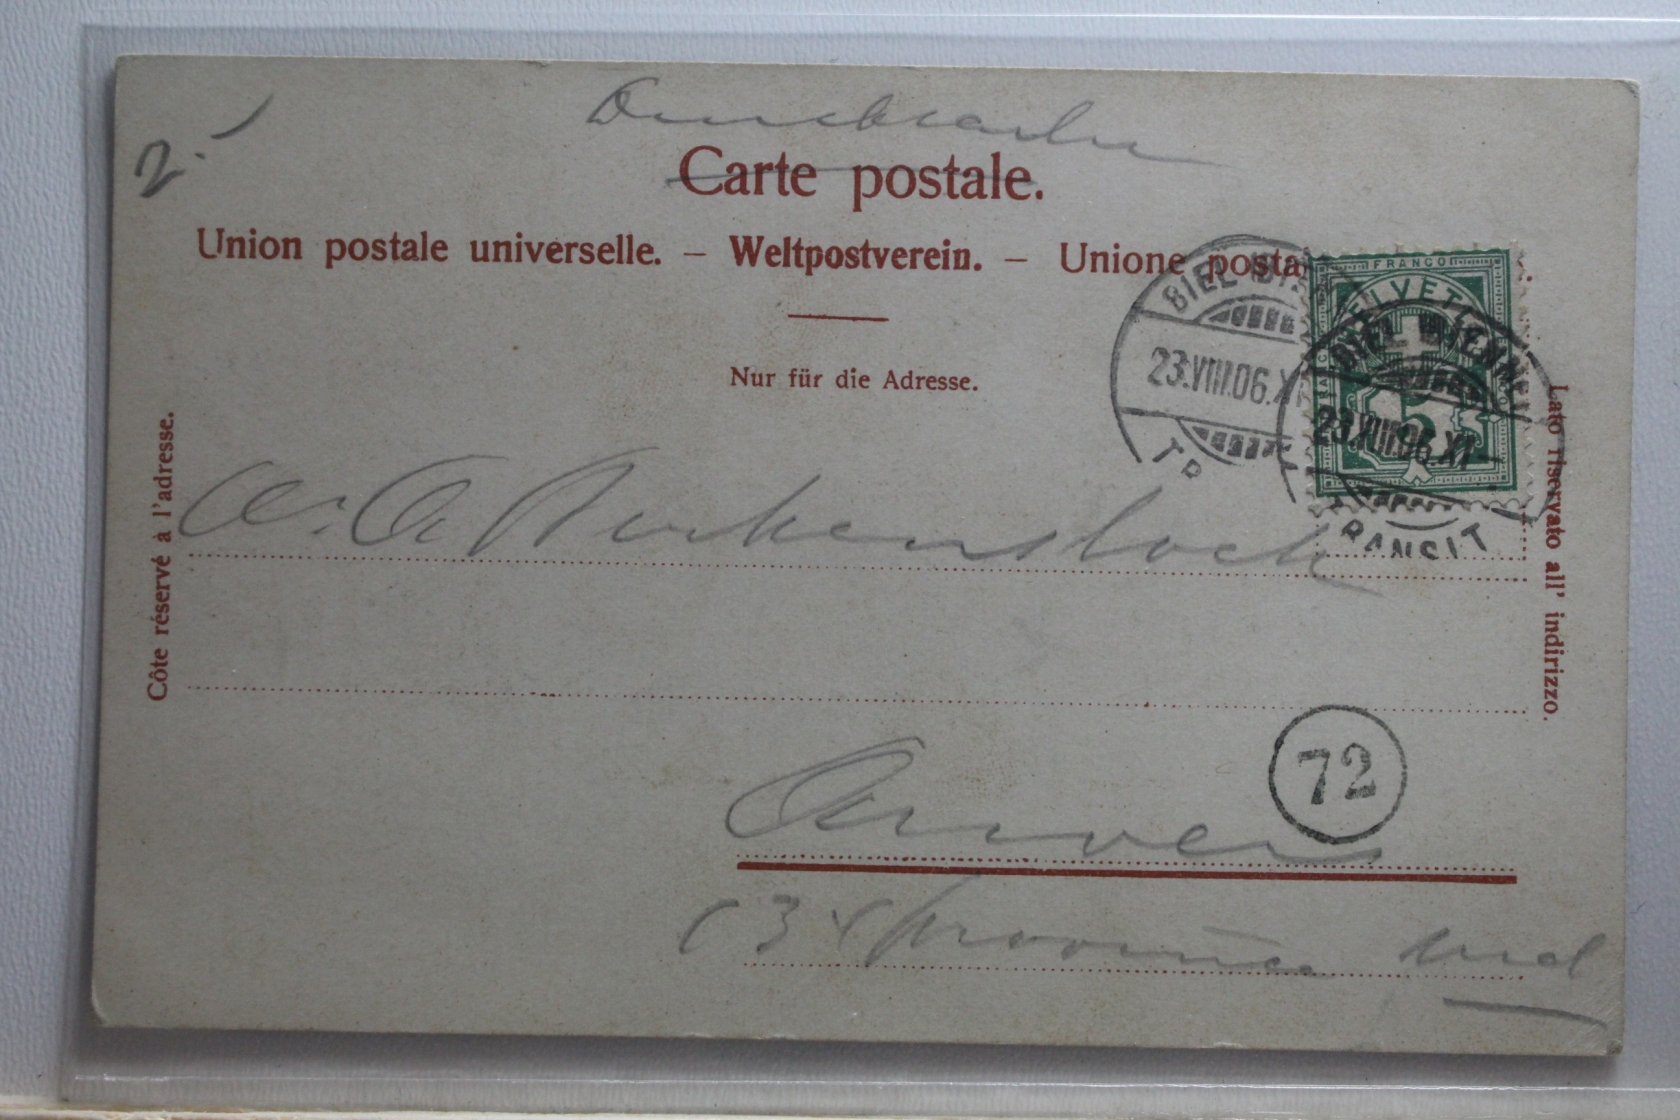 2.
Drucksache
Carte postale.
Union postale universelle. – Weltpostverein. – Unione posta
Nur für die Adresse.
Côte réservé à l'adresse.
Lato riservato all' indirizzo.
FRANCO
HELVETIA
5
BIEL (BI
23.VIII.06.X
TR
BIEL (BIENNE)
23.VIII.06.XI–
TRANSIT
Birkenstock
72
Anvers
province sud